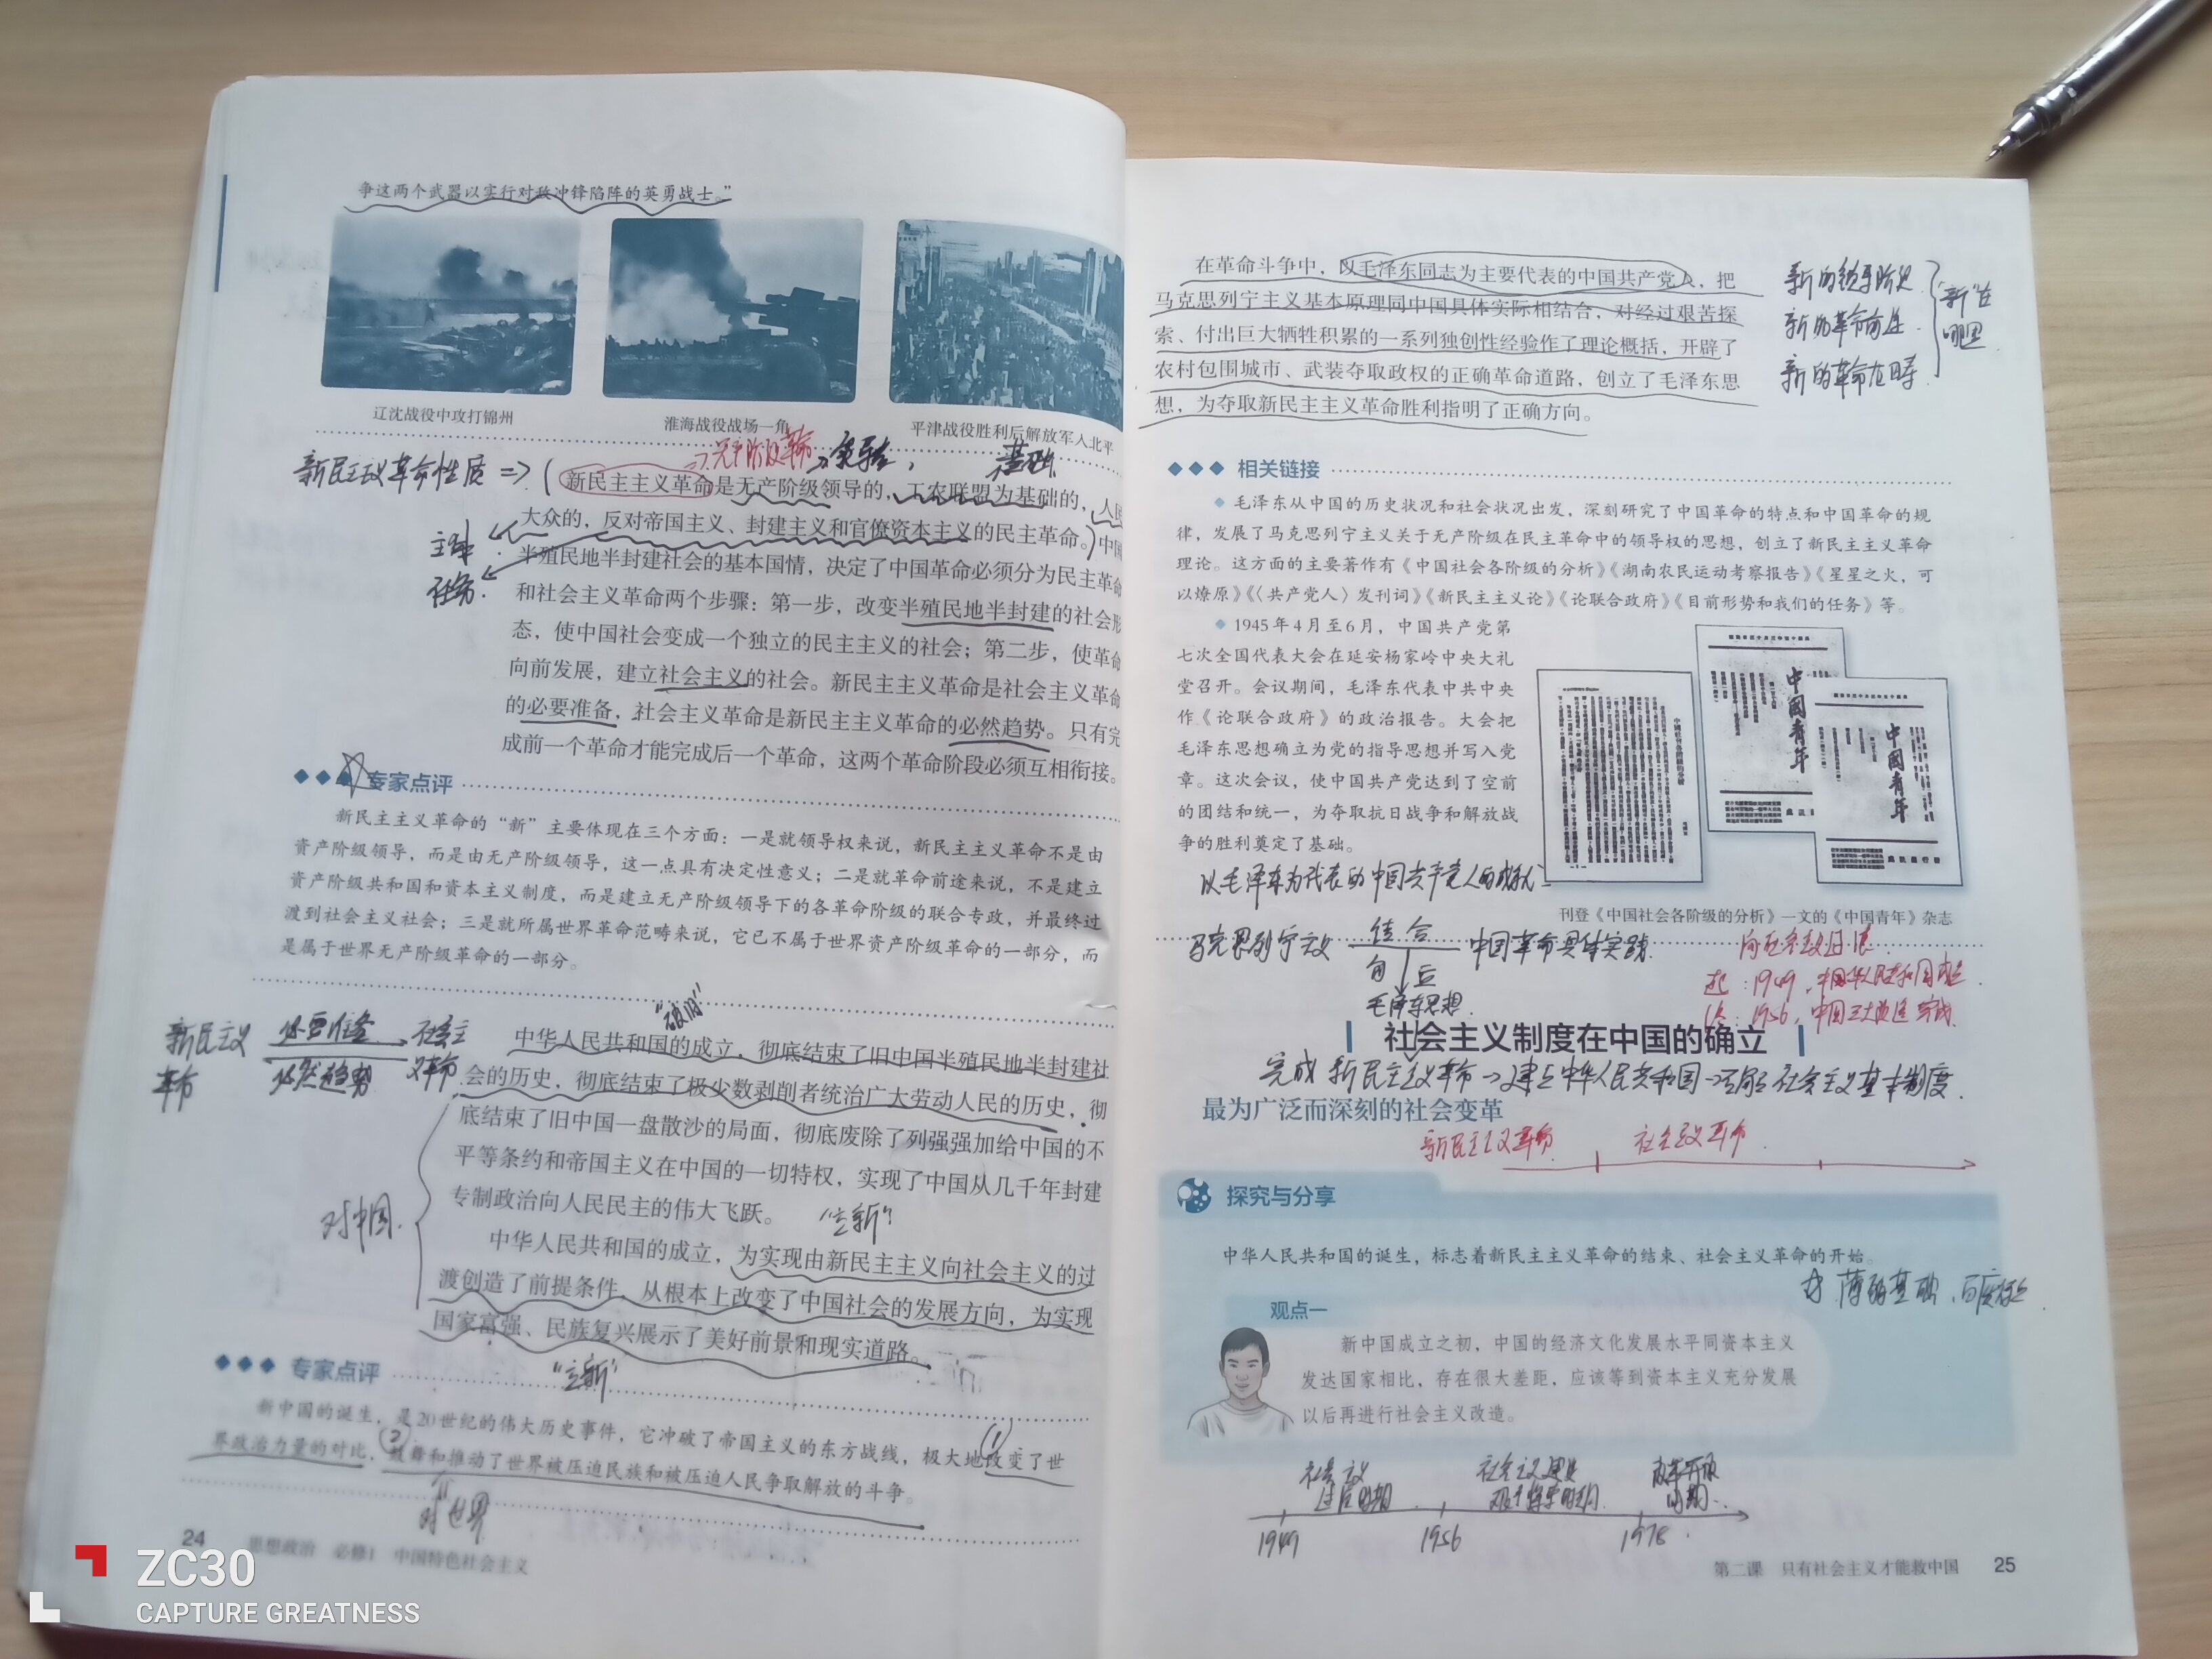 争这两个武器以实行对敌冲锋陷阵的英勇战士。”
辽沈战役中攻打锦州
淮海战役战场一角
平津战役胜利后解放军入北平
无产阶级革命
领导
基础
新民主主义革命性质 =>
新民主主义革命是无产阶级领导的，工农联盟为基础的，人民
大众的，反对帝国主义、封建主义和官僚资本主义的民主革命。中国
主体
半殖民地半封建社会的基本国情，决定了中国革命必须分为民主革命
任务
和社会主义革命两个步骤：第一步，改变半殖民地半封建的社会形
态，使中国社会变成一个独立的民主主义的社会；第二步，使革命
向前发展，建立社会主义的社会。新民主主义革命是社会主义革命
的必要准备，社会主义革命是新民主主义革命的必然趋势。只有完
成前一个革命才能完成后一个革命，这两个革命阶段必须互相衔接。
专家点评
新民主主义革命的“新”主要体现在三个方面：一是就领导权来说，新民主主义革命不是由
资产阶级领导，而是由无产阶级领导，这一点具有决定性意义；二是就革命前途来说，不是建立
资产阶级共和国和资本主义制度，而是建立无产阶级领导下的各革命阶级的联合专政，并最终过
渡到社会主义社会；三是就所属世界革命范畴来说，它已不属于世界资产阶级革命的一部分，而
是属于世界无产阶级革命的一部分。
“破旧”
新民主义
革命
必要准备
必然趋势
社会主
义革命
中华人民共和国的成立，彻底结束了旧中国半殖民地半封建社
会的历史，彻底结束了极少数剥削者统治广大劳动人民的历史，彻
底结束了旧中国一盘散沙的局面，彻底废除了列强强加给中国的不
平等条约和帝国主义在中国的一切特权，实现了中国从几千年封建
专制政治向人民民主的伟大飞跃。
对中国
“立新”
中华人民共和国的成立，为实现由新民主主义向社会主义的过
渡创造了前提条件，从根本上改变了中国社会的发展方向，为实现
国家富强、民族复兴展示了美好前景和现实道路。
“立新”
专家点评
新中国的诞生，是20世纪的伟大历史事件，它冲破了帝国主义的东方战线，极大地改变了世
界政治力量的对比，鼓舞和推动了世界被压迫民族和被压迫人民争取解放的斗争。
①
②
对世界
24 思想政治 必修1 中国特色社会主义
在革命斗争中，以毛泽东同志为主要代表的中国共产党人，把
马克思列宁主义基本原理同中国具体实际相结合，对经过艰苦探
索、付出巨大牺牲积累的一系列独创性经验作了理论概括，开辟了
农村包围城市、武装夺取政权的正确革命道路，创立了毛泽东思
想，为夺取新民主主义革命胜利指明了正确方向。
新的领导阶级
新的革命前途
新的革命范畴
“新”在
哪里
相关链接
毛泽东从中国的历史状况和社会状况出发，深刻研究了中国革命的特点和中国革命的规
律，发展了马克思列宁主义关于无产阶级在民主革命中的领导权的思想，创立了新民主主义革命
理论。这方面的主要著作有《中国社会各阶级的分析》《湖南农民运动考察报告》《星星之火，可
以燎原》《〈共产党人〉发刊词》《新民主主义论》《论联合政府》《目前形势和我们的任务》等。
1945年4月至6月，中国共产党第
七次全国代表大会在延安杨家岭中央大礼
堂召开。会议期间，毛泽东代表中共中央
作《论联合政府》的政治报告。大会把
毛泽东思想确立为党的指导思想并写入党
章。这次会议，使中国共产党达到了空前
的团结和统一，为夺取抗日战争和解放战
争的胜利奠定了基础。
中國青年
中國青年
以毛泽东为代表的中国共产党人的成就
刊登《中国社会各阶级的分析》一文的《中国青年》杂志
马克思列宁主义 结合 中国革命具体实践
毛泽东思想
起：1949，中华人民共和国成立
1956，中国三大改造完成
社会主义制度在中国的确立
完成 新民主主义革命→建立中华人民共和国→确立社会主义基本制度
最为广泛而深刻的社会变革
新民主主义革命
社会主义革命
探究与分享
中华人民共和国的诞生，标志着新民主主义革命的结束、社会主义革命的开始。
薄弱基础
观点一
新中国成立之初，中国的经济文化发展水平同资本主义
发达国家相比，存在很大差距，应该等到资本主义充分发展
以后再进行社会主义改造。
社会主义
过渡时期
社会主义建设
艰辛探索时期
改革开放
时期
1949
1956
1978
第二课 只有社会主义才能救中国 25
ZC30
CAPTURE GREATNESS